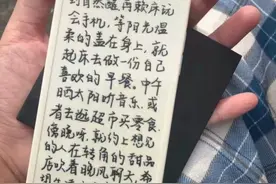 到自然醒,再赖床玩
会手机,等阳光温
柔的盖在身上,就
起床去做一份自己
喜欢的早餐。中午
晒太阳听音乐,或
者去逛超市买零食,
傍晚呀,就约上想见
的人在转角的甜品
店吹着晚风聊天,希